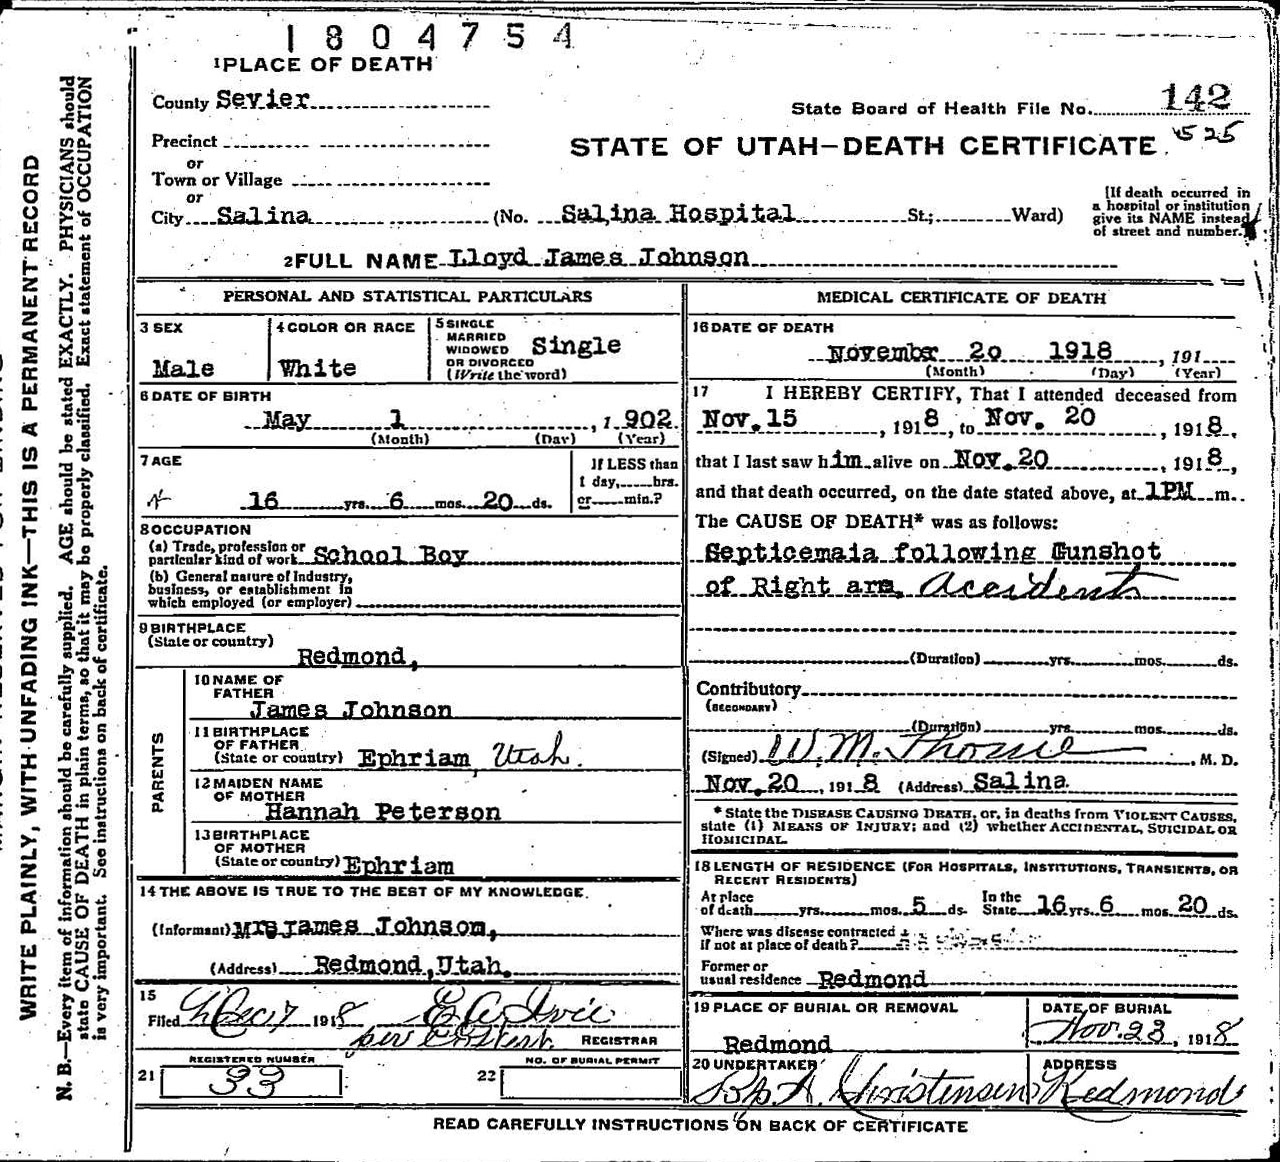 1804754
1 PLACE OF DEATH
County Sevier
State Board of Health File No. 142
Precinct
STATE OF UTAH—DEATH CERTIFICATE 525
or
Town or Village
or
City Salina (No. Salina Hospital St.; Ward)
[If death occurred in
a hospital or institution
give its NAME instead
of street and number.]
2 FULL NAME Lloyd James Johnson
PERSONAL AND STATISTICAL PARTICULARS
3 SEX
Male
4 COLOR OR RACE
White
5 SINGLE
MARRIED
WIDOWED
OR DIVORCED
(Write the word)
Single
6 DATE OF BIRTH
May 1, 1902
(Month) (Day) (Year)
7 AGE
16 yrs. 6 mos. 20 ds.
If LESS than
1 day, hrs.
or min.?
8 OCCUPATION
(a) Trade, profession or
particular kind of work School Boy
(b) General nature of Industry,
business, or establishment in
which employed (or employer)
9 BIRTHPLACE
(State or country)
Redmond,
PARENTS
10 NAME OF
FATHER
James Johnson
11 BIRTHPLACE
OF FATHER
(State or country) Ephriam, Utah.
12 MAIDEN NAME
OF MOTHER
Hannah Peterson
13 BIRTHPLACE
OF MOTHER
(State or country) Ephriam
14 THE ABOVE IS TRUE TO THE BEST OF MY KNOWLEDGE.
(Informant) Mrs James Johnson,
(Address) Redmond, Utah.
15
Filed Dec 7 1918
per REGISTRAR
REGISTERED NUMBER
21 33
NO. OF BURIAL PERMIT
22
MEDICAL CERTIFICATE OF DEATH
16 DATE OF DEATH
Novembr 20 1918, 191
(Month) (Day) (Year)
17 I HEREBY CERTIFY, That I attended deceased from
Nov. 15, 1918, to Nov. 20, 1918,
that I last saw him alive on Nov. 20, 1918,
and that death occurred, on the date stated above, at 1PM m.
The CAUSE OF DEATH* was as follows:
Septicemaia following Gunshot
of Right arm. Accident
(Duration) yrs. mos. ds.
Contributory
(SECONDARY)
(Duration) yrs. mos. ds.
(Signed) W. M. , M. D.
Nov. 20, 1918 (Address) Salina.
* State the DISEASE CAUSING DEATH, or, in deaths from VIOLENT CAUSES,
state (1) MEANS OF INJURY; and (2) whether ACCIDENTAL, SUICIDAL OR
HOMICIDAL.
18 LENGTH OF RESIDENCE (FOR HOSPITALS, INSTITUTIONS, TRANSIENTS, OR
RECENT RESIDENTS)
At place
of death yrs. mos. 5 ds.
In the
State 16 yrs. 6 mos. 20 ds.
Where was disease contracted
if not at place of death?
Former or
usual residence Redmond
19 PLACE OF BURIAL OR REMOVAL
Redmond
DATE OF BURIAL
Nov. 23, 1918
20 UNDERTAKER
Bp. A. Christensen
ADDRESS
Redmond
READ CAREFULLY INSTRUCTIONS ON BACK OF CERTIFICATE
WRITE PLAINLY, WITH UNFADING INK—THIS IS A PERMANENT RECORD
N. B.—Every item of information should be carefully supplied. AGE should be stated EXACTLY. PHYSICIANS should
state CAUSE OF DEATH in plain terms, so that it may be properly classified. Exact statement of OCCUPATION
is very important. See instructions on back of certificate.